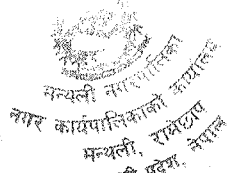 मन्थली नगरपालिका
नगर कार्यपालिकाको कार्यालय
मन्थली, रामेछाप
प्रदेश, नेपाल